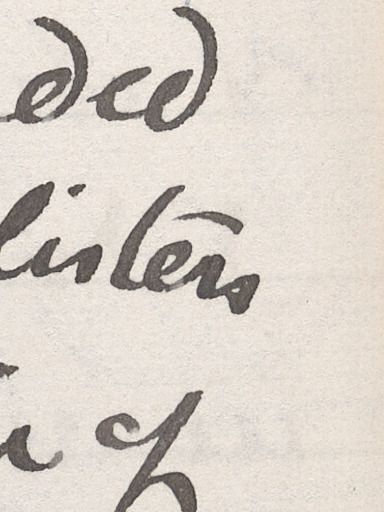 ded
listers
of